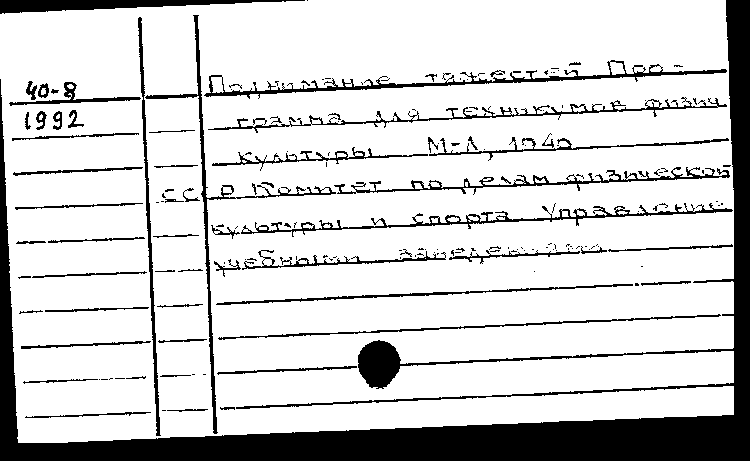 40-8
Поднимание тяжестей Про-
1992
грамма для техникумов физич
культуры М-Л, 1940
СССР Комитет по делам физической
культуры и спорта Управление
учебными заведениями